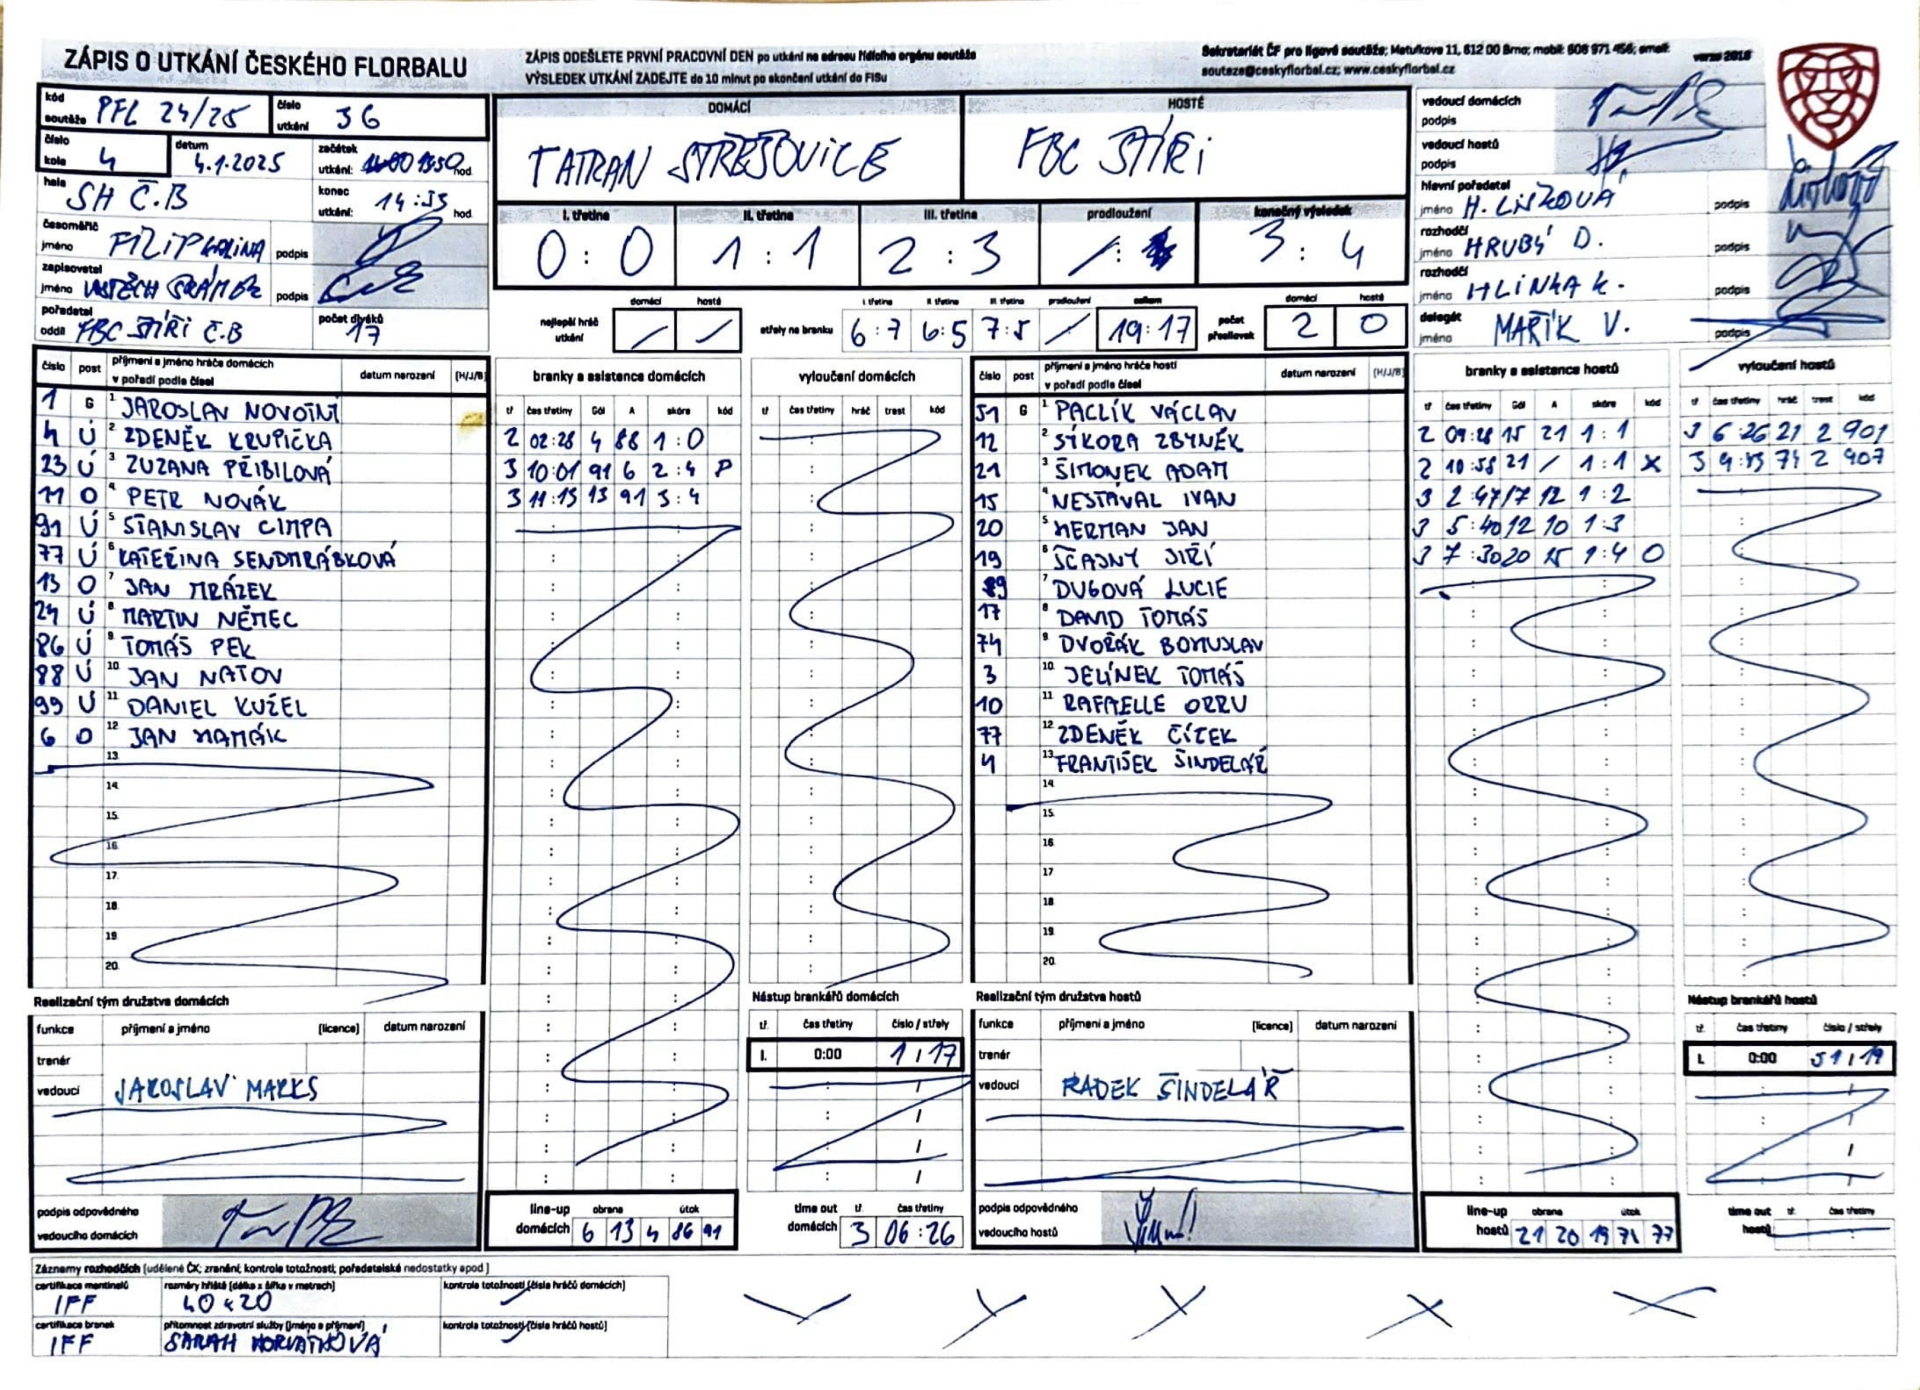 ZÁPIS O UTKÁNÍ ČESKÉHO FLORBALU
ZÁPIS ODEŠLETE PRVNÍ PRACOVNÍ DEN po utkání na adresu řídícího orgánu soutěže
VÝSLEDEK UTKÁNÍ ZADEJTE do 10 minut po skončení utkání do FISu
Sekretariát ČF pro ligové soutěže; Matulkova 11, 612 00 Brno; mobil: 608 971 456; email:
souteze@ceskyflorbal.cz; www.ceskyflorbal.cz
verze 2018
kód soutěže PFL 24/25 číslo utkání 36
číslo kola 4 datum 4.1.2025 začátek utkání: 1350 hod
hala SH Č.B konec utkání: 14:53 hod
časoměřič jméno FILIP KALINA podpis
zapisovatel jméno VOJTĚCH ŠRÁMEK podpis
pořadatel oddíl FBC ŠTÍŘI Č.B počet diváků 17
DOMÁCÍ HOSTÉ
TATRAN STŘEŠOVICE FBC ŠTÍŘI
I. třetina II. třetina III. třetina prodloužení konečný výsledek
0 : 0 1 : 1 2 : 3 / : 3 : 4
nejlepší hráč utkání domácí / hosté /
střely na branku I. třetina II. třetina III. třetina prodloužení celkem
6:7 6:5 7:5 / 19:17
počet přesilovek domácí 2 hosté 0
vedoucí domácích podpis
vedoucí hostů podpis
hlavní pořadatel jméno H. LIŠKOVÁ podpis
rozhodčí jméno HRUBÝ D. podpis
rozhodčí jméno HLINKA K. podpis
delegát jméno MAŘÍK V. podpis
číslo post příjmení a jméno hráče domácích v pořadí podle čísel datum narození (H/J/B)
1 G 1 JAROSLAV NOVOTNÝ
4 Ú 2. ZDENĚK KRUPIČKA
23 Ú 3. ZUZANA PŘIBILOVÁ
11 O 4 PETR NOVÁK
91 Ú 5 STANISLAV CIMPA
77 Ú 6 KATEŘINA SENDMRÁBKOVÁ
13 O 7 JAN MRÁZEK
24 Ú 8. MARTIN NĚMEC
86 Ú 9. TOMÁŠ PEK
88 Ú 10. JAN NATOV
99 Ú 11 DANIEL KUŽEL
6 O 12 JAN HAMÁK
13
14.
15.
16.
17.
18.
19.
20.
branky a asistence domácích
tř čas třetiny Gól A skóre kód
2 02:28 4 88 1:0
3 10:01 91 6 2:4 P
3 11:15 13 91 3:4
vyloučení domácích
tř čas třetiny hráč trest kód
číslo post příjmení a jméno hráče hostí v pořadí podle čísel datum narození (H/J/B)
51 G 1 PACLÍK VÁCLAV
12 2 SÝKORA ZBYNĚK
21 3 ŠIMONEK ADAM
15 4 NESTÁVAL IVAN
20 5 HERMAN JAN
19 6 ŠČASNÝ JIŘÍ
89 7 DUGOVÁ LUCIE
17 8 DAVID TOMÁŠ
74 9. DVOŘÁK BOHUSLAV
3 10. JELÍNEK TOMÁŠ
10 11 RAFFAELLE ORRU
77 12 ZDENĚK ČÍŽEK
4 13 FRANTIŠEK ŠINDELÁŘ
14
15.
16
17
18
19.
20.
branky a asistence hostů
tř čas třetiny Gól A skóre kód
2 09:28 15 21 1:1
2 10:58 21 / 1:1 X
3 2:47 17 12 1:2
3 5:40 12 10 1:3
3 7:30 20 15 1:4 O
vyloučení hostů
tř čas třetiny hráč trest kód
3 6:26 21 2 901
3 9:43 74 2 907
Realizační tým družstva domácích
funkce příjmení a jméno (licence) datum narození
trenér
vedoucí JAROSLAV MARKS
podpis odpovědného vedoucího domácích
line-up domácích obrana útok
6 13 4 86 91
Nástup brankářů domácích
tř. čas třetiny číslo / střely
I. 0:00 1 / 17
time out domácích tř. čas třetiny
3 06:26
Realizační tým družstva hostů
funkce příjmení a jméno (licence) datum narození
trenér
vedoucí RADEK ŠINDELÁŘ
podpis odpovědného vedoucího hostů
line-up hostů obrana útok
21 20 19 74 77
Nástup brankářů hostů
tř. čas třetiny číslo / střely
I. 0:00 51 / 19
time out hostů tř. čas třetiny
Záznamy rozhodčích (udělené ČK; zranění; kontrola totožnosti; pořadatelské nedostatky apod.)
certifikace mantinelů IFF rozměry hřiště (délka x šířka v metrech) 40x20 kontrola totožnosti (čísla hráčů domácích)
certifikace branek IFF přítomnost zdravotní služby (jméno a příjmení) SARAH HORVÁTHOVÁ kontrola totožnosti (čísla hráčů hostů)